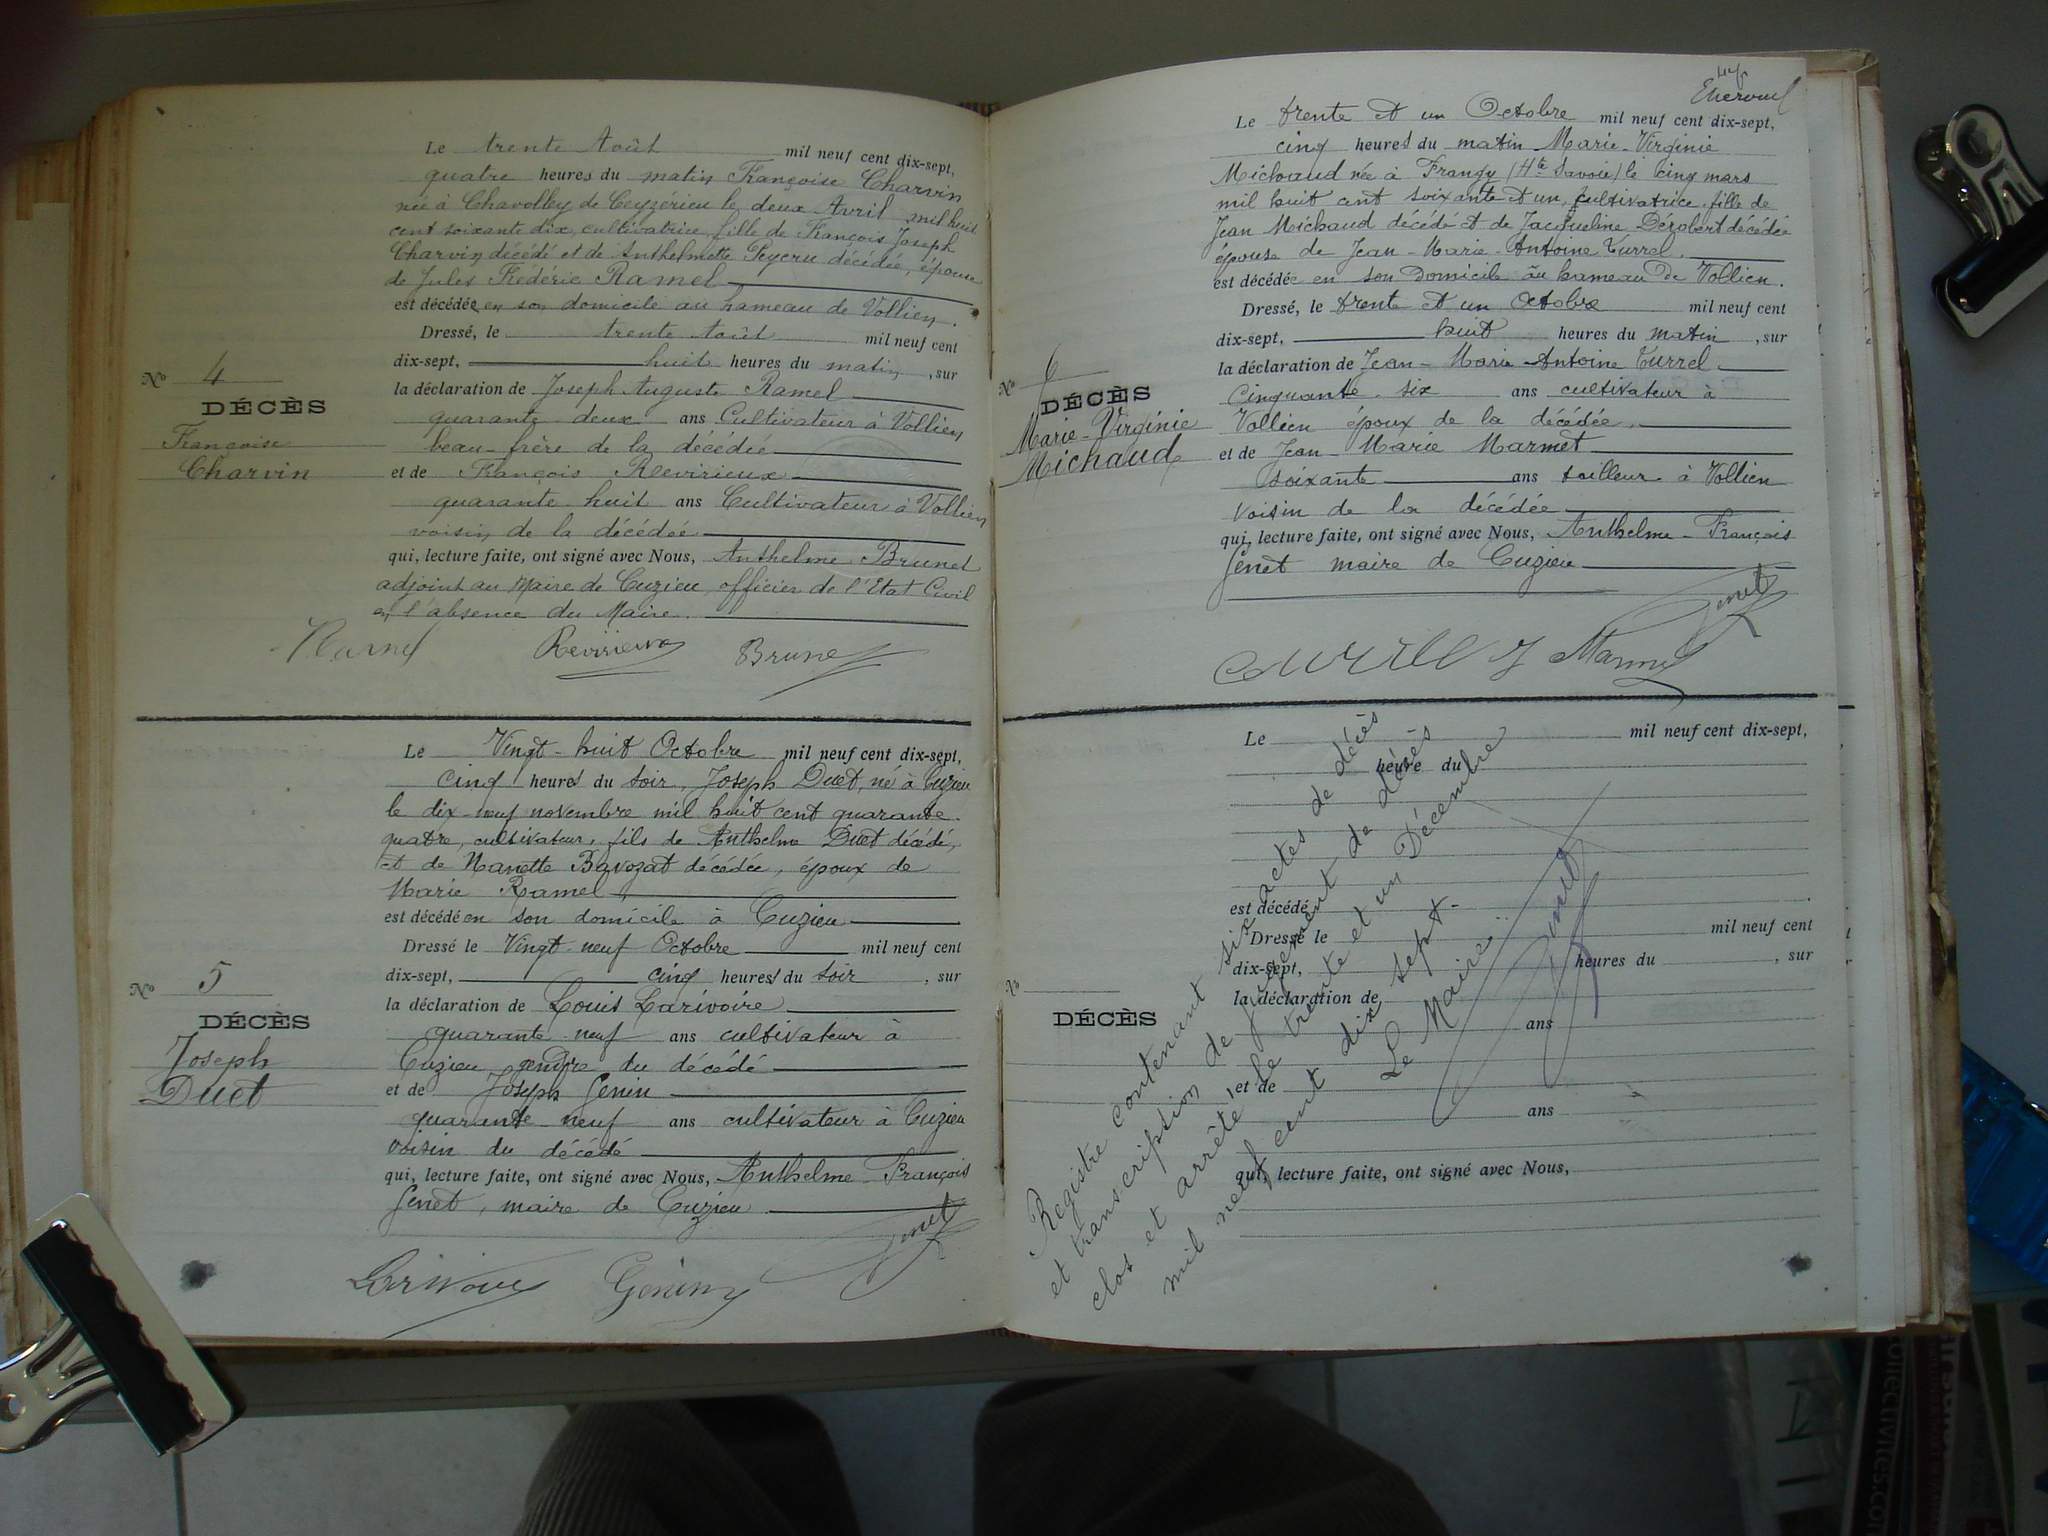 Le trente Août mil neuf cent dix-sept,
quatre heures du matin Françoise Charvin
née à Chavolley de Ceyzérieu le deux Avril mil huit
cent soixante dix, cultivatrice, fille de François Joseph
Charvin décédé et de Anthelmette Peycru décédée, épouse
de Jules Frédéric Ramel
est décédée en son domicile au hameau de Vollien.
Dressé, le trente Août mil neuf cent
dix-sept, huit heures du matin, sur
la déclaration de Joseph Auguste Ramel
quarante deux ans Cultivateur à Vollien
beau-frère de la décédée
et de François Revirieux
quarante huit ans Cultivateur à Vollien
voisin de la décédée
qui, lecture faite, ont signé avec Nous, Anthelme Brunet
adjoint au Maire de Cuzieu, officier de l'Etat Civil
en l'absence du Maire.
Revirieux Brunet
No 4
DÉCÈS
Françoise
Charvin
Le Vingt-huit Octobre mil neuf cent dix-sept,
cinq heures du soir, Joseph Duet, né à Cuzieu
le dix-neuf novembre mil huit cent quarante-
quatre, cultivateur, fils de Anthelme Duet décédé,
et de Nanette Bavozat décédée, époux de
Marie Ramel,
est décédé en son domicile à Cuzieu
Dressé le Vingt-neuf Octobre mil neuf cent
dix-sept, cinq heures du soir, sur
la déclaration de Louis Larivoire
quarante-neuf ans cultivateur à
Cuzieu, gendre du décédé
et de Joseph Genin
quarante-neuf ans cultivateur à Cuzieu
voisin du décédé
qui, lecture faite, ont signé avec Nous, Anthelme-François
Genet, maire de Cuzieu
Larivoire Genin Genet
No 5
DÉCÈS
Joseph
Duet
Le trente et un Octobre mil neuf cent dix-sept,
cinq heures du matin Marie-Virginie
Michaud née à Frangy (Hte Savoie) le cinq mars
mil huit cent soixante et un, cultivatrice, fille de
Jean Michaud décédé et de Jacqueline Dérobert décédée
épouse de Jean-Marie-Antoine Turrel.
est décédée en son Domicile au hameau de Vollien.
Dressé, le trente et un Octobre mil neuf cent
dix-sept, huit heures du matin, sur
la déclaration de Jean-Marie-Antoine Turrel
Cinquante-six ans cultivateur à
Vollien époux de la décédée.
et de Jean-Marie Marmet
soixante ans tailleur à Vollien
voisin de la décédée
qui, lecture faite, ont signé avec Nous, Anthelme-François
Genet maire de Cuzieu
Genet
Marmet
No 6
DÉCÈS
Marie-Virginie
Michaud
Le mil neuf cent dix-sept,
heure du
est décédé
Dressé le mil neuf cent
dix-sept, heures du , sur
la déclaration de
ans
et de
ans
qui, lecture faite, ont signé avec Nous,
No
DÉCÈS
Registre contenant six actes de décès
et transcription de jugement de décès
clos et arrêté, le trente et un Décembre
mil neuf cent dix sept.
Le Maire:
Genet